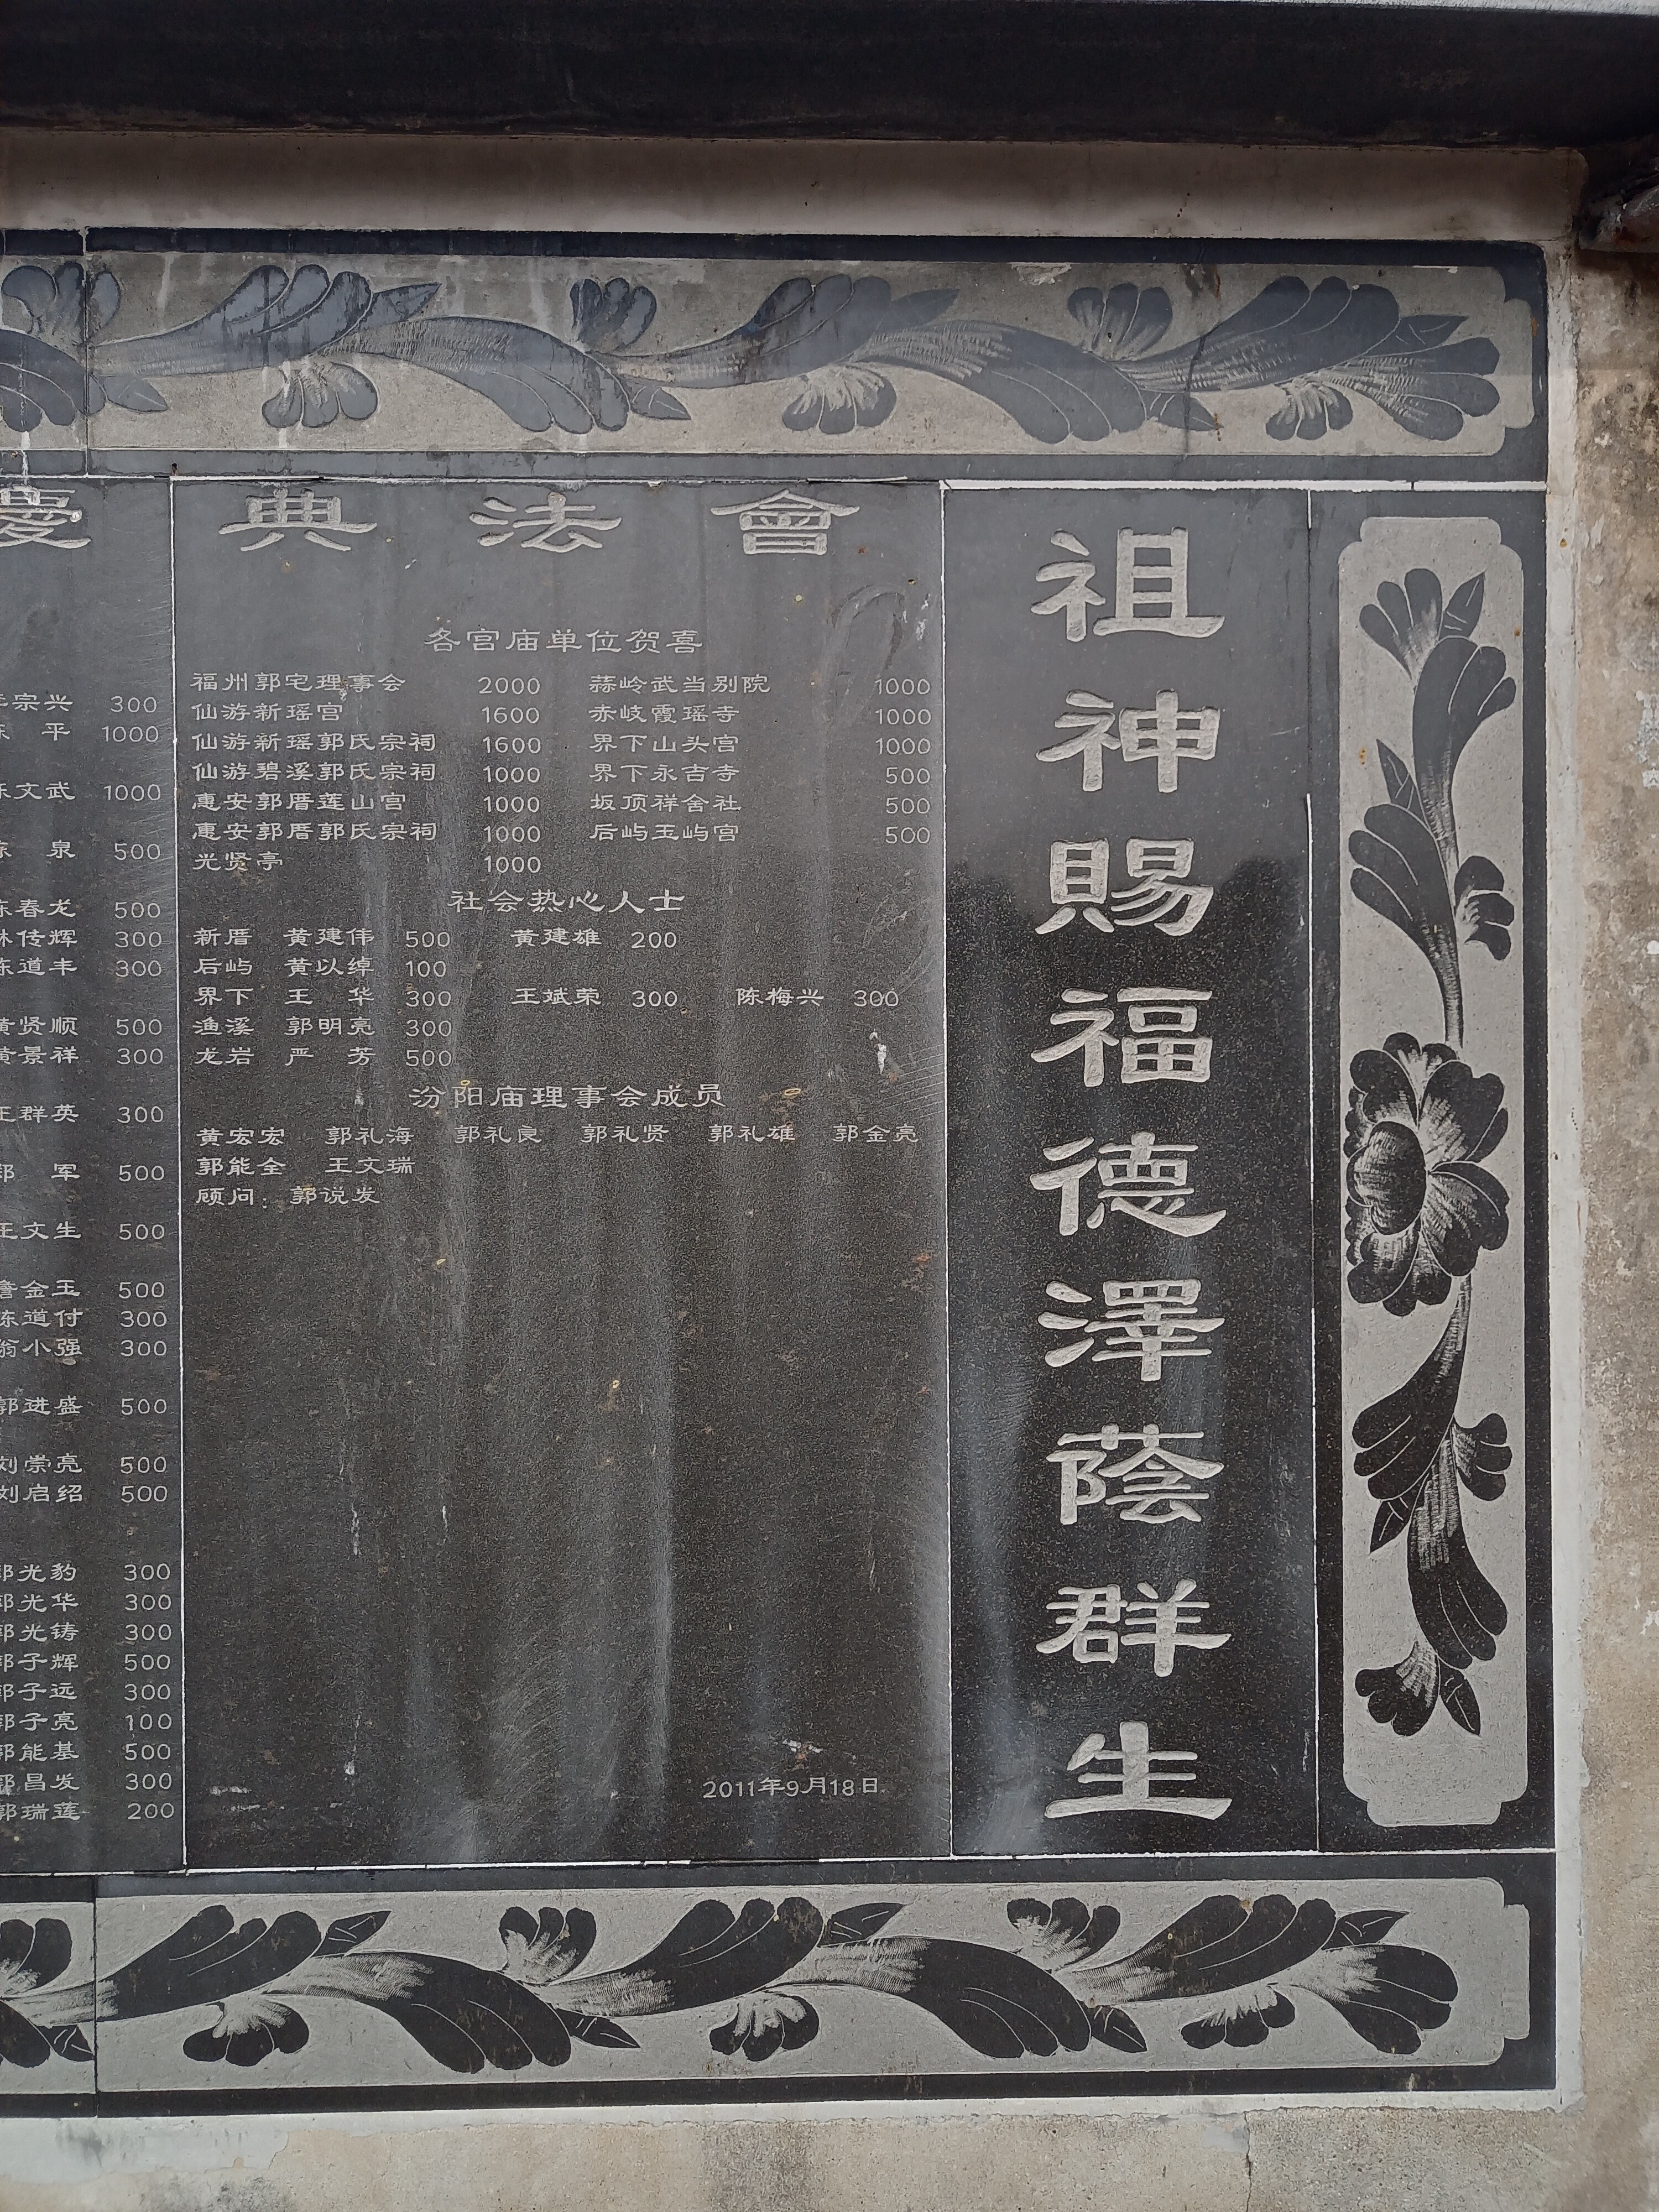 慶典法會
宗兴 300
平 1000
文武 1000
泉 500
春龙 500
林传辉 300
陈道丰 300
黄贤顺 500
黄景祥 300
王群英 300
军 500
王文生 500
詹金玉 500
陈道付 300
翁小强 300
郭进盛 500
刘崇亮 500
刘启绍 500
郭光豹 300
郭光华 300
郭光铸 300
郭子辉 500
郭子远 300
郭子亮 100
郭能基 500
郭昌发 300
郭瑞莲 200
各宫庙单位贺喜
福州郭宅理事会 2000 蒜岭武当别院 1000
仙游新瑶宫 1600 赤岐霞瑶寺 1000
仙游新瑶郭氏宗祠 1600 界下山头宫 1000
仙游碧溪郭氏宗祠 1000 界下永吉寺 500
惠安郭厝莲山宫 1000 坂顶祥舍社 500
惠安郭厝郭氏宗祠 1000 后屿玉屿宫 500
光贤亭 1000
社会热心人士
新厝 黄建伟 500 黄建雄 200
后屿 黄以绰 100
界下 王华 300 王斌荣 300 陈梅兴 300
渔溪 郭明亮 300
龙岩 严芳 500
汾阳庙理事会成员
黄宏宏 郭礼海 郭礼良 郭礼贤 郭礼雄 郭金亮
郭能全 王文瑞
顾问：郭说发
2011年9月18日
祖神賜福德澤蔭群生